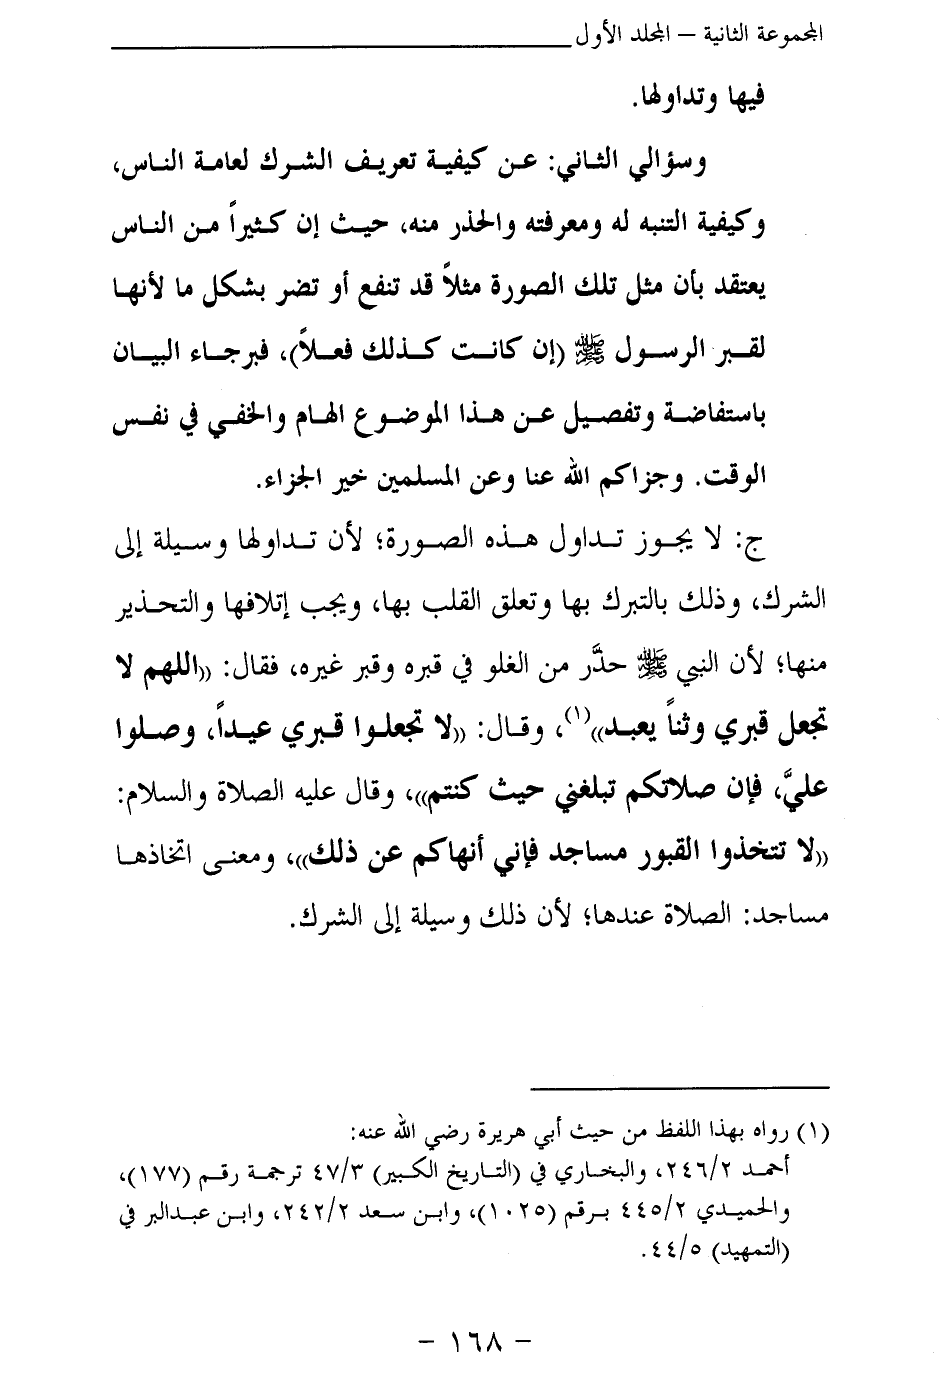 المجموعة الثانية – المجلد الأول
فيها وتداولها.
وسؤالي الثاني: عن كيفية تعريف الشرك لعامة الناس،
وكيفية التنبه له ومعرفته والحذر منه، حيث إن كثيراً من الناس
يعتقد بأن مثل تلك الصورة مثلاً قد تنفع أو تضر بشكل ما لأنها
لقبر الرسول ﷺ (إن كانت كذلك فعلاً)، فبرجاء البيان
باستفاضة وتفصيل عن هذا الموضوع الهام والخفي في نفس
الوقت. وجزاكم الله عنا وعن المسلمين خير الجزاء.
ج: لا يجوز تداول هذه الصورة؛ لأن تداولها وسيلة إلى
الشرك، وذلك بالتبرك بها وتعلق القلب بها، ويجب إتلافها والتحذير
منها؛ لأن النبي ﷺ حذَّر من الغلو في قبره وقبر غيره، فقال: ((اللهم لا
تجعل قبري وثناً يعبد))(١)، وقال: ((لا تجعلوا قبري عيداً، وصلوا
عليَّ، فإن صلاتكم تبلغني حيث كنتم))، وقال عليه الصلاة والسلام:
((لا تتخذوا القبور مساجد فإني أنهاكم عن ذلك))، ومعنى اتخاذها
مساجد: الصلاة عندها؛ لأن ذلك وسيلة إلى الشرك.
(١) رواه بهذا اللفظ من حيث أبي هريرة رضي الله عنه:
أحمد ٢٤٦/٢، والبخاري في (التاريخ الكبير) ٤٧/٣ ترجمة رقم (١٧٧)،
والحميدي ٤٤٥/٢ برقم (١٠٢٥)، وابن سعد ٢٤٢/٢، وابن عبدالبر في
(التمهيد) ٤٤/٥.
– ١٦٨ –